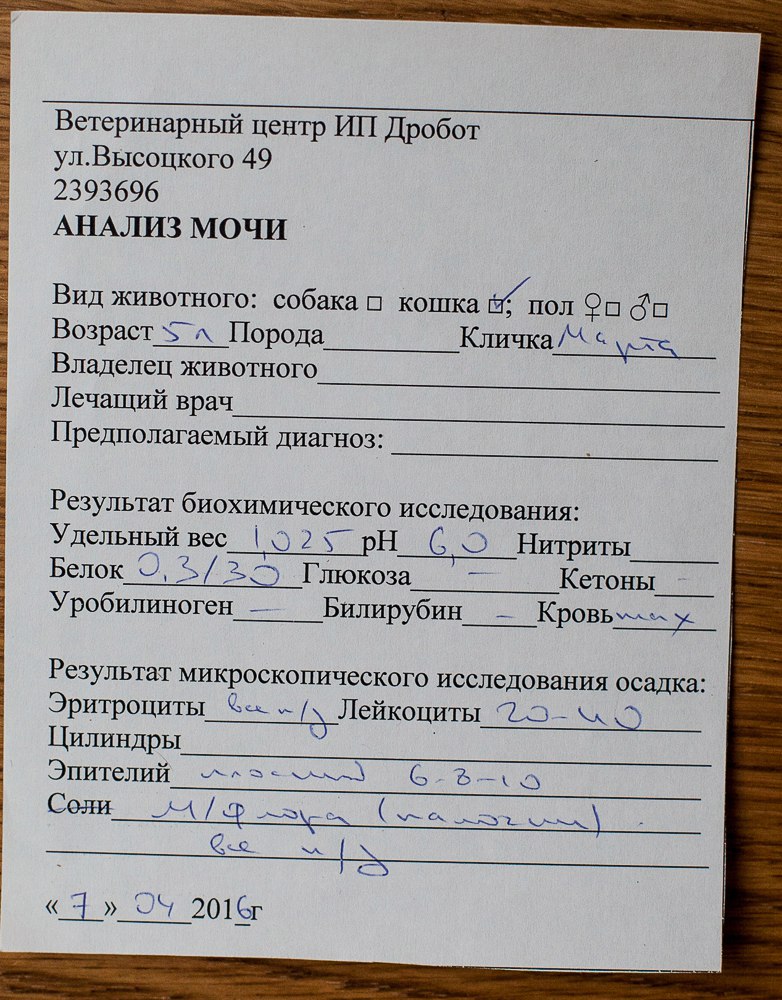 Ветеринарный центр ИП Дробот
ул.Высоцкого 49
2393696
АНАЛИЗ МОЧИ
Вид животного: собака □ кошка ☑; пол ♀□ ♂□
Возраст 5 л Порода Кличка Марта
Владелец животного
Лечащий врач
Предполагаемый диагноз:
Результат биохимического исследования:
Удельный вес 1,025 pH 6,0 Нитриты
Белок 0,3/30 Глюкоза — Кетоны —
Уробилиноген — Билирубин — Кровь max
Результат микроскопического исследования осадка:
Эритроциты все п/з Лейкоциты 20-40
Цилиндры
Эпителий плоский 6-8-10
Соли м/флора (палочки)
все п/з
«7» 04 2016г